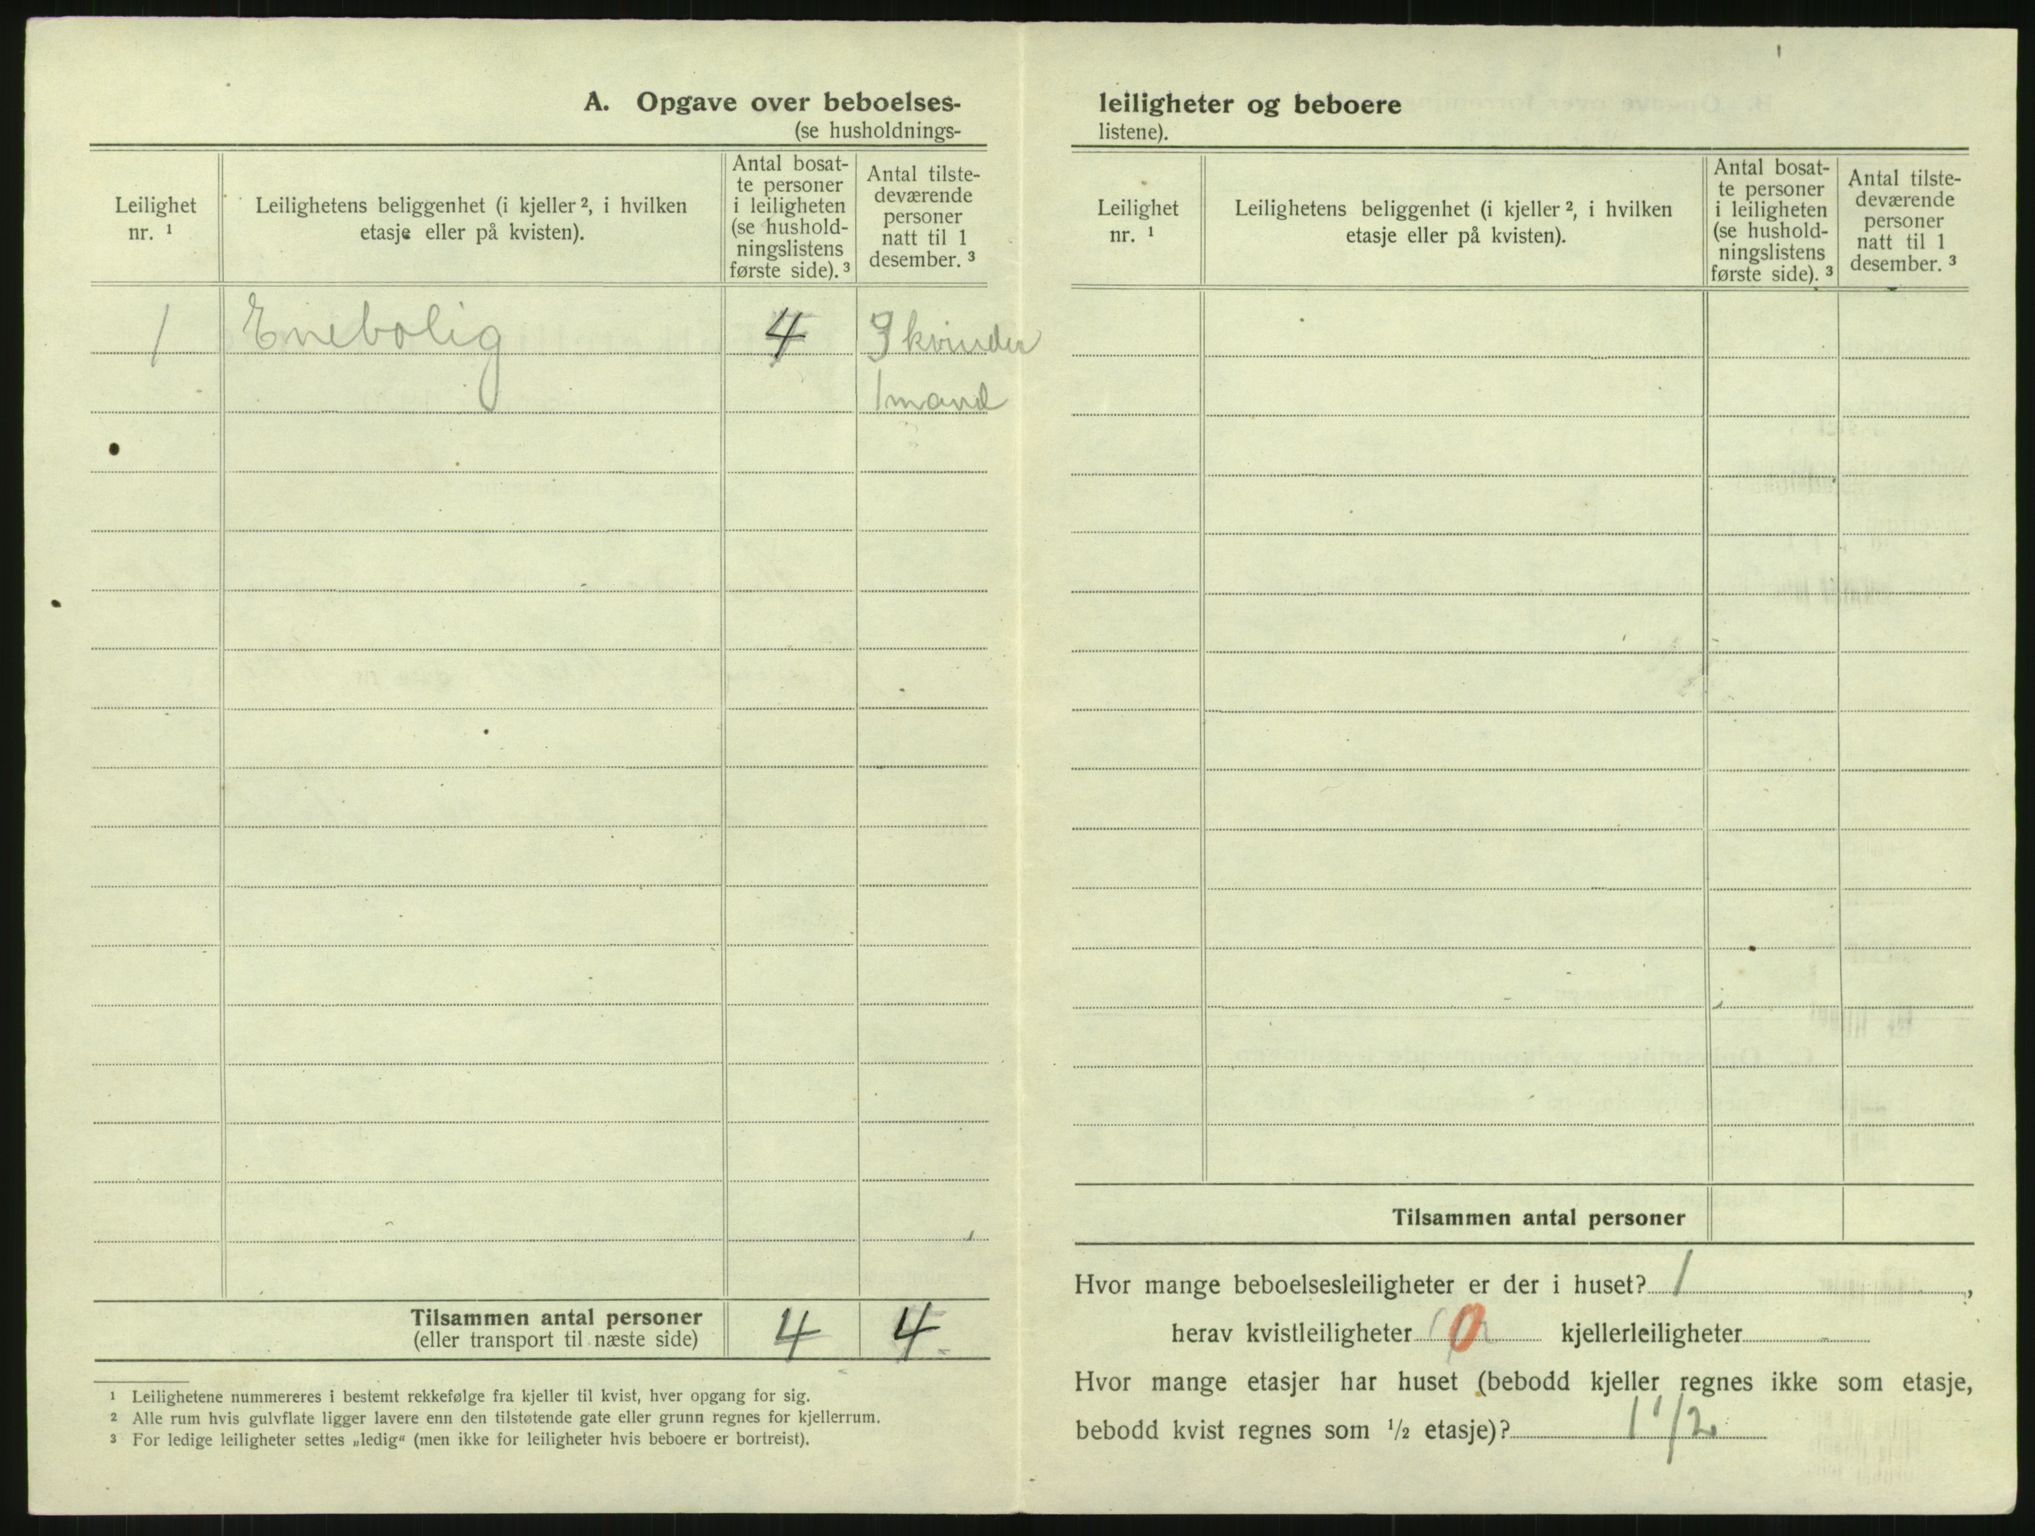 A. Opgave over beboelses-
(se husholdnings-
Leilighet nr. ¹
Leilighetens beliggenhet (i kjeller ², i hvilken
etasje eller på kvisten).
Antal bosat-
te personer
i leiligheten
(se hushold-
ningslistens
første side). ³
Antal tilste-
deværende
personer
natt til 1
desember. ³
1 Enebolig 4 3 kvinder
1 mand
Tilsammen antal personer 4 4
(eller transport til næste side)
¹ Leilighetene nummereres i bestemt rekkefølge fra kjeller til kvist, hver opgang for sig.
² Alle rum hvis gulvflate ligger lavere enn den tilstøtende gate eller grunn regnes for kjellerrum.
³ For ledige leiligheter settes „ledig“ (men ikke for leiligheter hvis beboere er bortreist).
leiligheter og beboere
listene).
Leilighet
nr. ¹
Leilighetens beliggenhet (i kjeller ², i hvilken
etasje eller på kvisten).
Antal bosat-
te personer
i leiligheten
(se hushold-
ningslistens
første side). ³
Antal tilste-
deværende
personer
natt til 1
desember. ³
Tilsammen antal personer
Hvor mange beboelsesleiligheter er der i huset? 1,
herav kvistleiligheter 0 kjellerleiligheter -
Hvor mange etasjer har huset (bebodd kjeller regnes ikke som etasje,
bebodd kvist regnes som ½ etasje)? 1 1/2